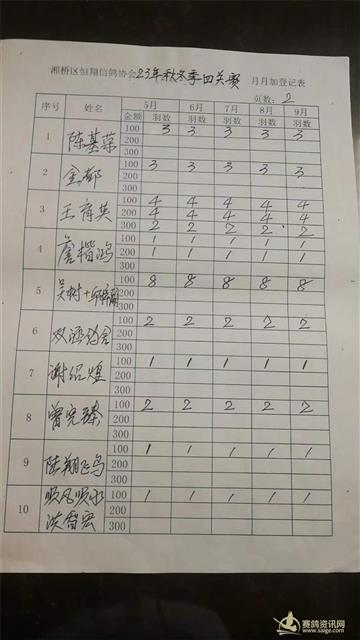 湘桥区恒翔信鸽协会23年秋冬季四关赛 月月加登记表
页数: 2
序号 姓名 5月 6月 7月 8月 9月
金额 羽数 羽数 羽数 羽数 羽数
1 陈基荣 100 3 3 3 3 3
200
300
2 金都 100 3 3 3 3 3
200
300
3 王育英 100 4 4 4 4 4
200 4 4 4 4 4
300 2 2 2 2 2
4 詹楷鸿 100 1 1 1 1 1
200 1 1 1 1 1
300
5 吴树+ 100 8 8 8 8 8
200
300
6 双涵鸽舍 100 2 2 2 2 2
200
300
7 谢绍煌 100 1 1 1 1 1
200
300
8 曾宪臻 100 2 2 2 2 2
200
300
9 陆翔飞鸟 100 1 1 1 1 1
200
300
10 顺风顺水 100 1 1 1 1 1
洪智宏 200
300
赛鸽资讯网
www.saige.com